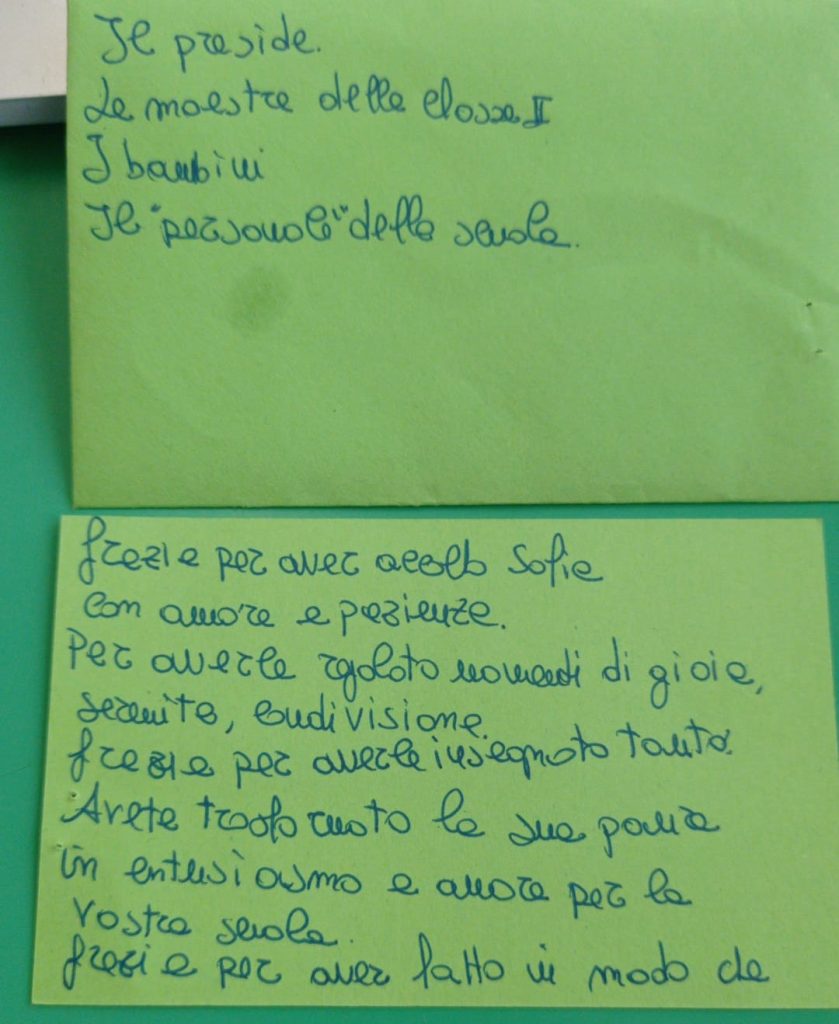 Il preside.
Le maestre della classe II
I bambini
Il "personale" della scuola.
Grazie per aver accolto Sofia
con amore e pazienza.
Per averle regalato momenti di gioia,
serenità, condivisione.
Grazie per averle insegnato tanto.
Avete trasformato la sua paura
in entusiasmo e amore per la
vostra scuola.
Grazie per aver fatto in modo che